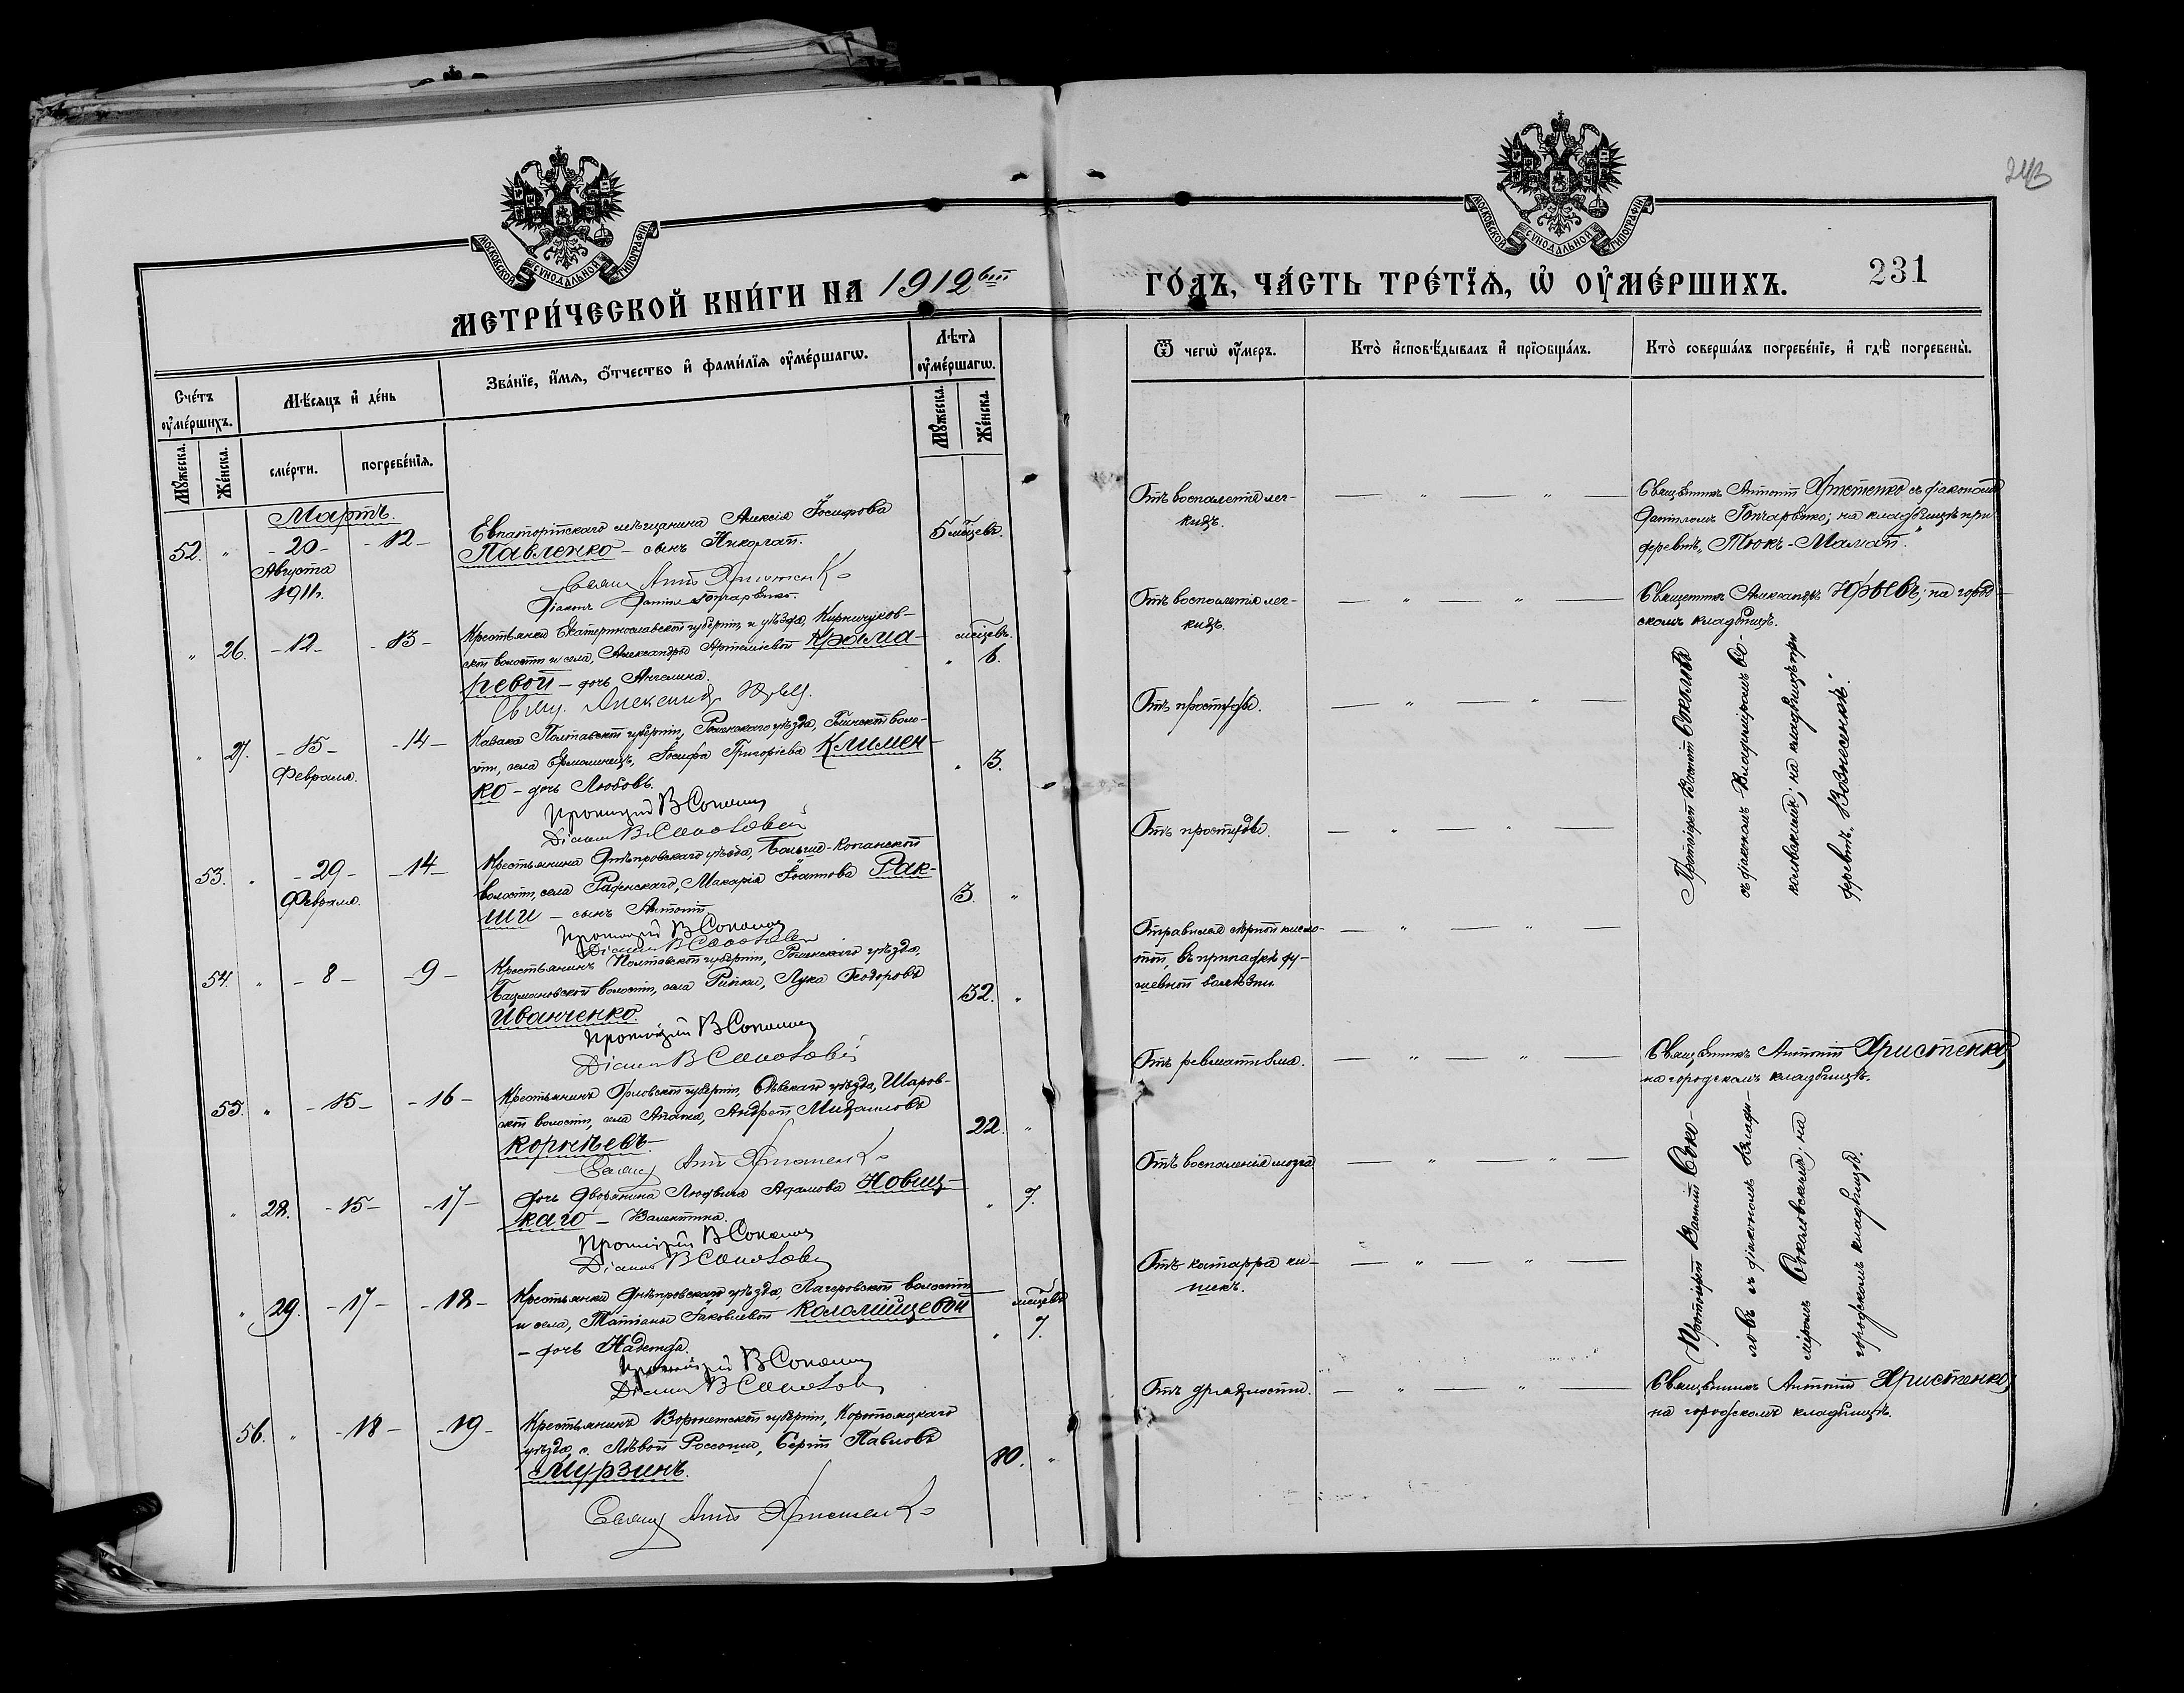 243
МОСКОВСКОЙ СѴНОДАЛЬНОЙ ТИПОГРАФІИ
МОСКОВСКОЙ СѴНОДАЛЬНОЙ ТИПОГРАФІИ
МЕТРИ́ЧЕСКОЙ КНИ́ГИ НА 1912вый
ГО́ДЪ, ЧА́СТЬ ТРЕ́ТЇѦ, Ѡ҆ ОУ҆МЕ́РШИХЪ.
231
Сче́тъ оу҆ме́ршихъ.
Мꙋ́жеска.
Же́нска.
Мѣ́сѧцъ и҆ де́нь
сме́рти.
погребе́нїѧ.
Зва́нїе, и҆́мѧ, ѻ҆́тчество и҆ фами́лїѧ оу҆ме́ршагѡ.
Лѣ́та оу҆ме́ршагѡ.
Мꙋ́жеска.
Же́нска.
Ѿ чегѡ̀ оу҆́меръ.
Кто̀ и҆сповѣ́дывалъ и҆ прїѡбща́лъ.
Кто̀ соверша́лъ погребе́нїе, и҆ гдѣ̀ погребены̀.
Мартъ.
52. " - 20 - Августа 1911г. - 12 -
Евпаторійскаго мѣщанина Алексія Іосифова
Павленко - сынъ Николай.
5 мѣсцевъ.
Свящ Ант Христенко
Діаконъ Даніилъ Гончаренко.
Отъ воспаленія лег-
кихъ.
Священникъ Антоній Христенко съ діакономъ
Даніиломъ Гончаренко; на кладбищѣ при
деревнѣ „Тюкъ-Мамай".
" 26. - 12 - - 13 -
Крестьянки Екатеринославской губерніи и уѣзда,
ской волости и села, Александры Артеміевой Крыма-
невой - дочь Ангелина.
мѣсцевъ.
" 6.
Свящ. Александръ Юрьевъ.
Отъ воспаленія лег-
кихъ.
Священникъ Александръ Юрьевъ; на город-
скомъ кладбищѣ.
" 27. - 15 - Февраля. - 14 -
Казака Полтавской губерніи, Роменскаго уѣзда, волос-
ти, села Іосифа Григоріева Климен-
ко - дочь Любовь.
" 3.
Протоіерей В Соколовъ
Діаконъ В Соколовскій
Отъ простуды.
Протоіерей Василій Соколовъ
съ діакономъ Владиміромъ Со-
коловскимъ; на кладбищѣ при
деревнѣ „Вознесенкѣ".
53. " - 29 - Февраля. - 14 -
Крестьянина Днѣпровскаго уѣзда, Больше-Копанской
волости, села Раденскаго, Макарія Іоаннова Рак-
ши - сынъ Антоній
3. "
Протоіерей В Соколовъ
Діаконъ В Соколовскій
Отъ простуды.
54. " - 8 - - 9 -
Крестьянинъ Полтавской губерніи, Роменскаго уѣзда,
волости, села Рипки, Лука Ѳеодоровъ
Иванченко.
52. "
Протоіерей В Соколовъ
Діаконъ В Соколовскій
Отравился сѣрной кисло-
той, въ припадкѣ ду-
шевной болѣзни.
55. " - 15 - - 16 -
Крестьянинъ Орловской губерніи, Сѣвскаго уѣзда, Шаров-
ской волости, села Андрей Михаиловъ
Корнѣевъ.
22. "
Свящ Ант Христенко
Отъ ревматизма.
Священникъ Антоній Христенко,
на городскомъ кладбищѣ.
" 28. - 15 - - 17 -
Дочь дворянина Людвига Адамова Новиц-
каго - Валентина.
" 7.
Протоіерей В Соколовъ
Діаконъ В Соколовскій
Отъ воспаленія мозга
Протоіерей Василій Соко-
ловъ съ діакономъ Влади-
міромъ Соколовскимъ; на
городскомъ кладбищѣ.
" 29. - 17 - - 18 -
Крестьянки Днѣпровскаго уѣзда, Лагеровской волости
и села, Татіаны Іаковлевой Коломійцевой
- дочь Надежда.
мѣсцевъ
" 7.
Протоіерей В Соколовъ
Діаконъ В Соколовскій
Отъ катарра ки-
шекъ.
56. " - 18 - - 19 -
Крестьянинъ Воронежской губерніи, Коротоякскаго
уѣзда, с. Лѣвой Россоши, Сергій Павловъ
Мурзинъ.
80. "
Свящ Ант Христенко
Отъ дряхлости.
Священникъ Антоній Христенко,
на городскомъ кладбищѣ.